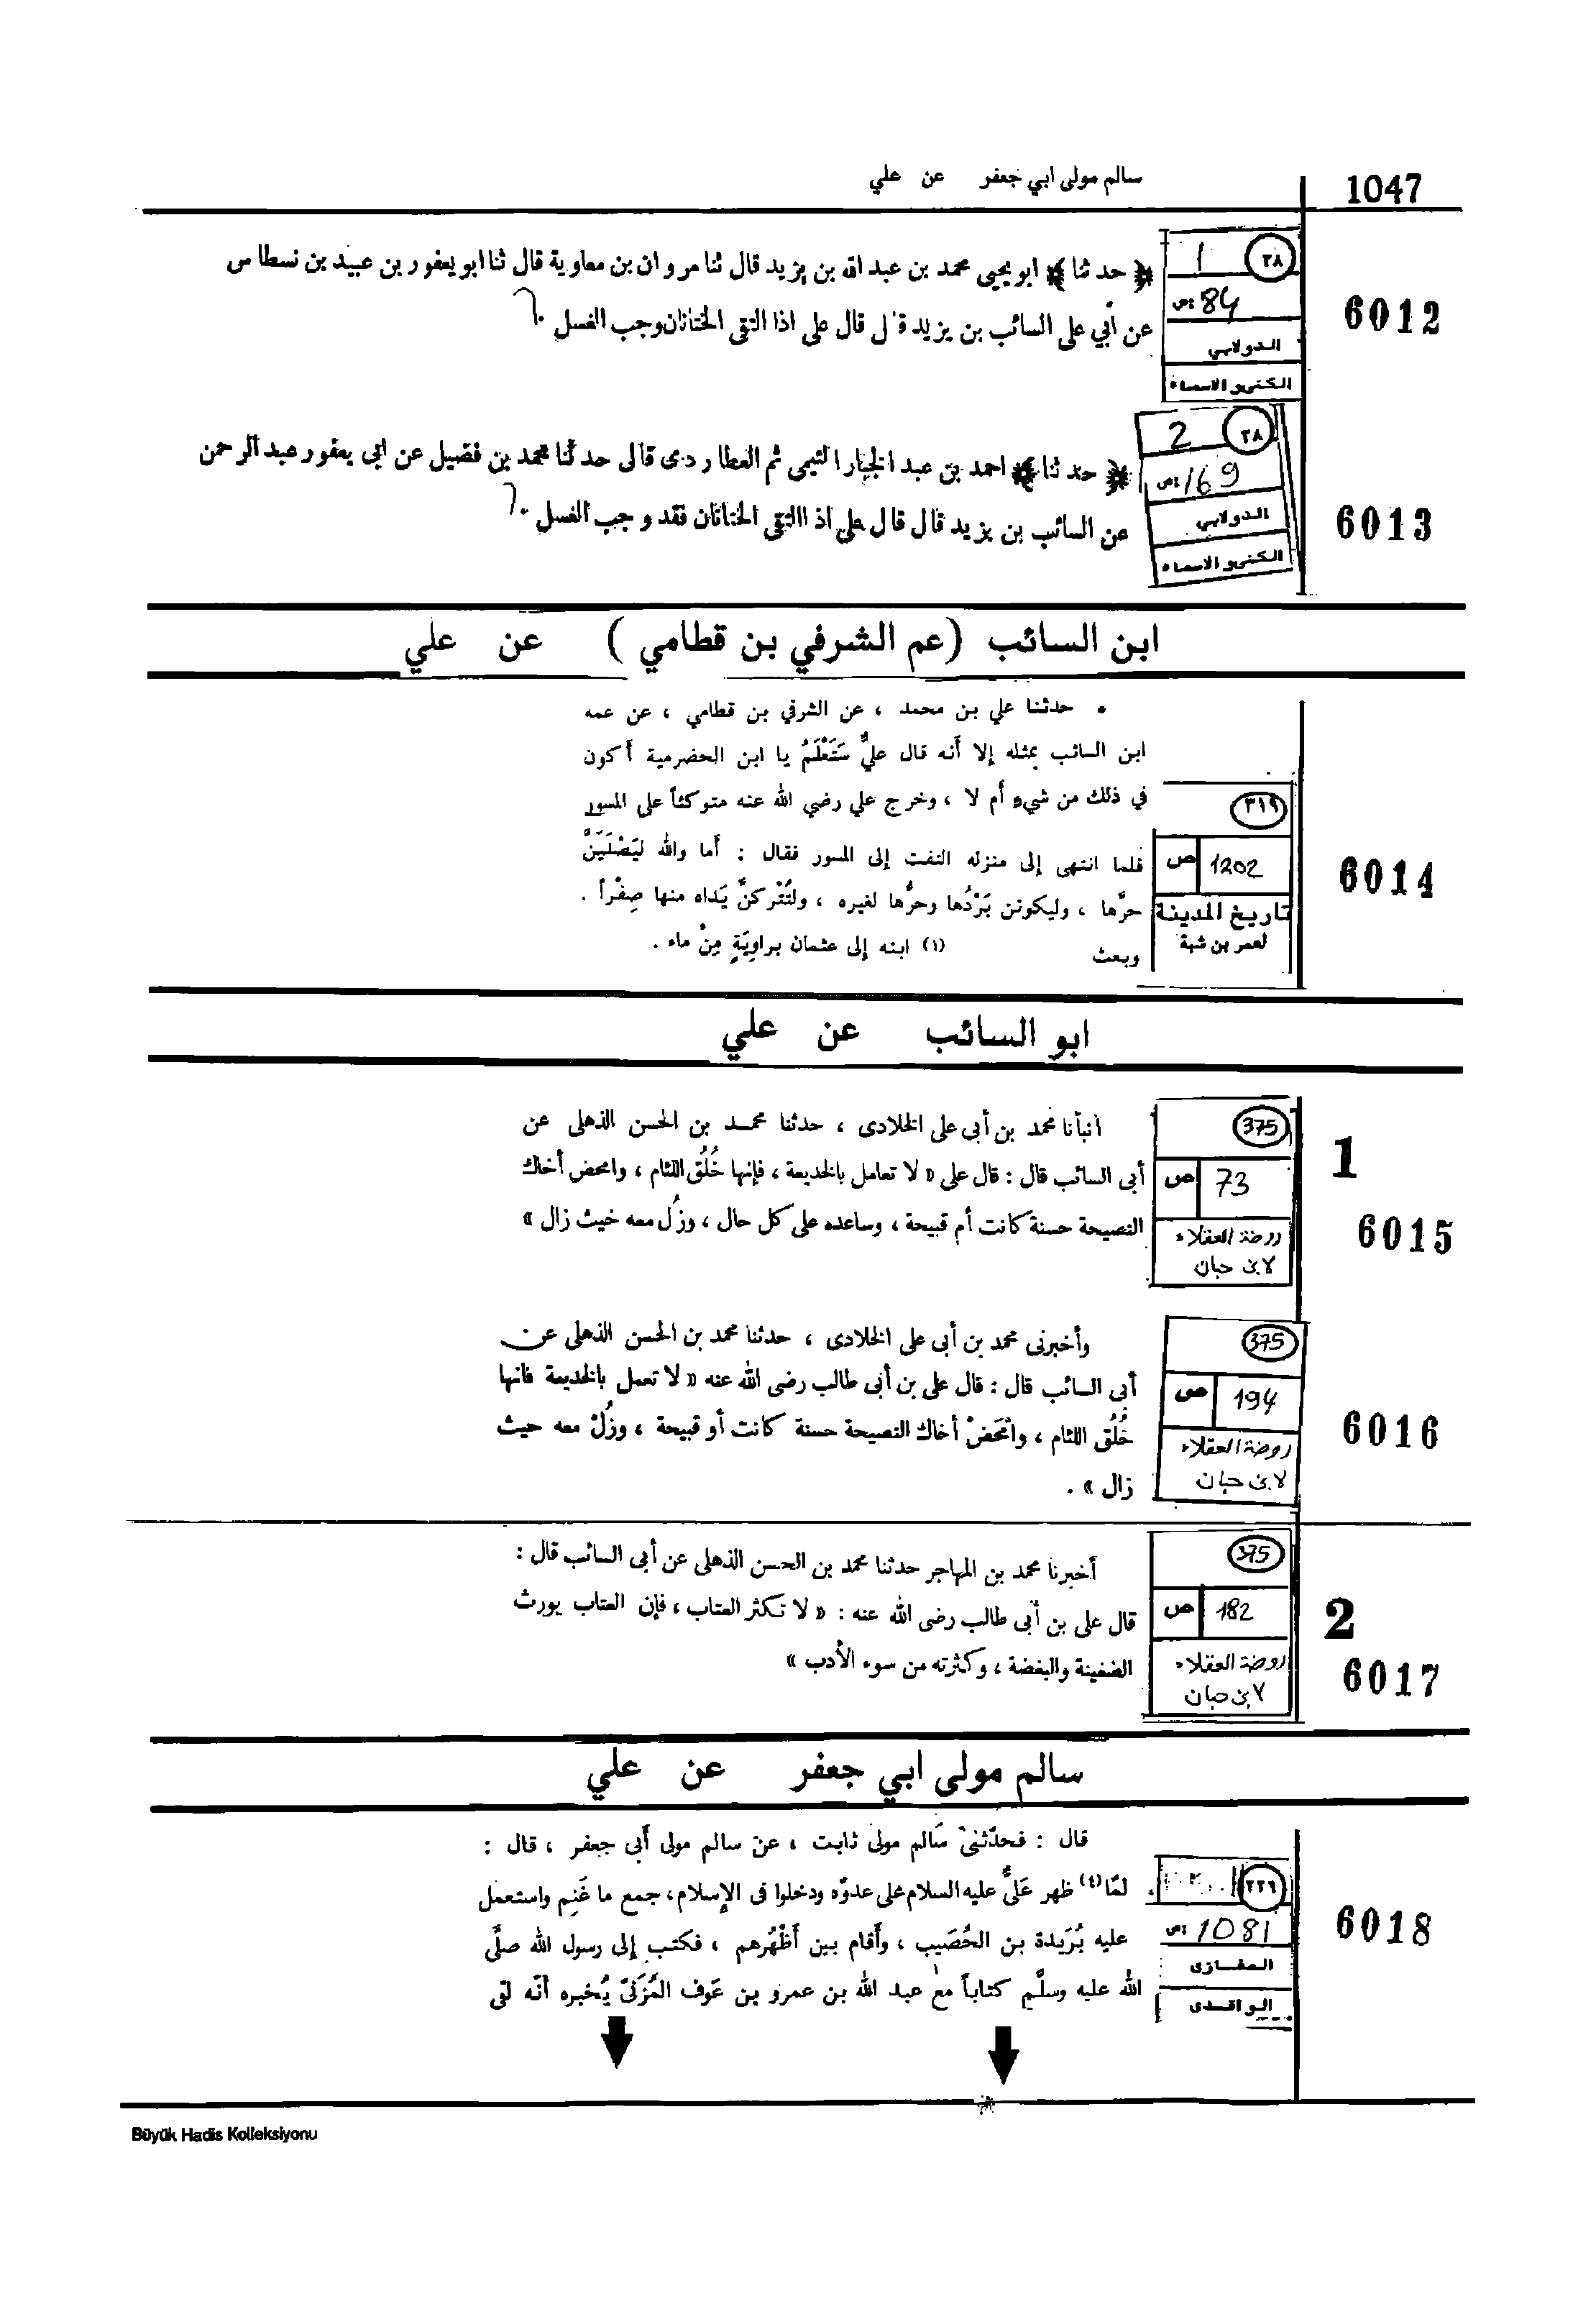 سالم مولى ابي جعفر عن علي
1047
﴿ حدثنا ﴾ ابو يحيى محمد بن عبد الله بن يزيد قال ثنا مروان بن معاوية قال ثنا ابو يعفور بن عبيد بن نسطاس
عن أبي على السائب بن يزيد قال قال على اذا التقى الختانان وجب الغسل ٠
٣٨
1
ص: 84
الدولابي
الكنى و الاسماء
6012
﴿ حدثنا ﴾ احمد بن عبد الجبار التيمى ثم العطاردى قالى حدثنا محمد بن فضيل عن ابى يعفور عبد الرحمن
عن السائب بن يزيد قال قال على اذا التقى الختانان فقد وجب الغسل ٠
٣٨
2
ص: 169
الدولابي
الكنى و الاسماء
6013
ابن السائب (عم الشرفي بن قطامي ) عن علي
• حدثنا علي بن محمد ، عن الشرفي بن قطامي ، عن عمه
ابن السائب بمثله إلا أنه قال عليٌّ سَتَعْلَمُ يا ابن الحضرمية أكون
في ذلك من شيءٍ أم لا ، وخرج علي رضي الله عنه متوكئاً على المسور
فلما انتهى إلى منزله التفت إلى المسور فقال : أما والله ليَصْلَيَنَّ
حرَّها ، وليكونن بَرْدُها وحرُّها لغيره ، ولتُتْركنَّ يَداه منها صِفْراً .
وبعث (١) ابنه إلى عثمان براويَةٍ مِنْ ماء .
٣١٩
ص 1202
تاريخ المدينة
لعمر بن شبة
6014
ابو السائب عن علي
أنبأنا محمد بن أبى على الخلادى ، حدثنا محمـد بن الحسن الذهلى عن
أبى السائب قال : قال على « لا تعامل بالخديعة ، فإنها خُلُق اللئام ، وامحض أخاك
النصيحة حسنة كانت أم قبيحة ، وساعده على كل حال ، وزُل معه حيث زال »
375
ص 73
روضة العقلاء
لابن حبان
1
6015
وأخبرنى محمد بن أبى على الخلادى ، حدثنا محمد بن الحسن الذهلى عن
أبى السائب قال : قال على بن أبى طالب رضى الله عنه « لا تعمل بالخديعة فانها
خُلُق اللئام ، وامْحَضْ أخاك النصيحة حسنة كانت أو قبيحة ، وزُلْ معه حيث
زال » .
375
ص 194
روضة العقلاء
لابن حبان
6016
أخبرنا محمد بن المهاجر حدثنا محمد بن الحسن الذهلى عن أبى السائب قال :
قال على بن أبى طالب رضى الله عنه : « لا تكثر العتاب ، فإن العتاب يورث
الضغينة والبغضة ، وكثرته من سوء الأدب »
375
ص 182
روضة العقلاء
لابن حبان
2
6017
سالم مولى ابي جعفر عن علي
قال : فحدّثنىْ سَالم مولى ثابت ، عن سالم مولى أبى جعفر ، قال :
لمّا(٤) ظهر عَلىٌّ عليه السلام على عدوّه ودخلوا فى الإسلام، جمع ما غَنِم واستعمل
عليه بُرَيدة بن الحُصَيب ، وأقام بين أظْهُرهم ، فكتب إلى رسول الله صلَّى
الله عليه وسلَّم كتاباً مع عبد الله بن عمرو بن عَوف المُزَنىّ يُخبره أنّه لقى
٢٢٦
ص: 1081
المغازى
الواقدى
6018
Büyük Hadis Kolleksiyonu